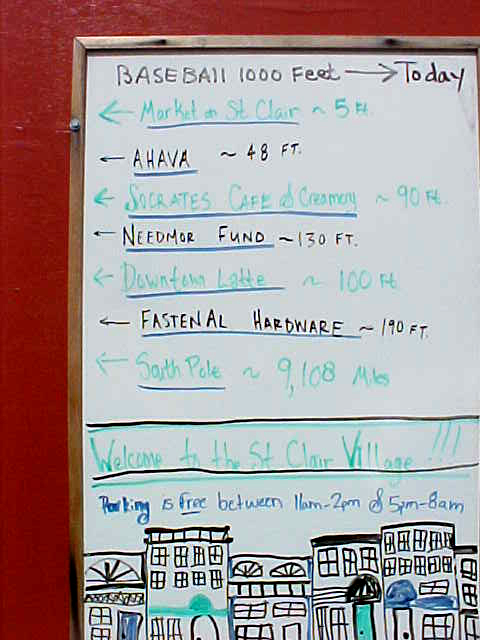 BASEBAll 1000 Feet → Today
← Market on St Clair ~ 5 Ft.
← AHAVA ~ 48 FT.
← SOCRATES CAFE & Creamery ~ 90 Ft.
← NEEDMOR FUND ~ 130 FT.
← Downtown Latte ~ 100 Ft
← FASTENAL HARDWARE ~ 190 FT.
← South Pole ~ 9,108 Miles
Welcome to the St. Clair Village!!!
Parking is Free between 11am-2pm & 5pm-8am